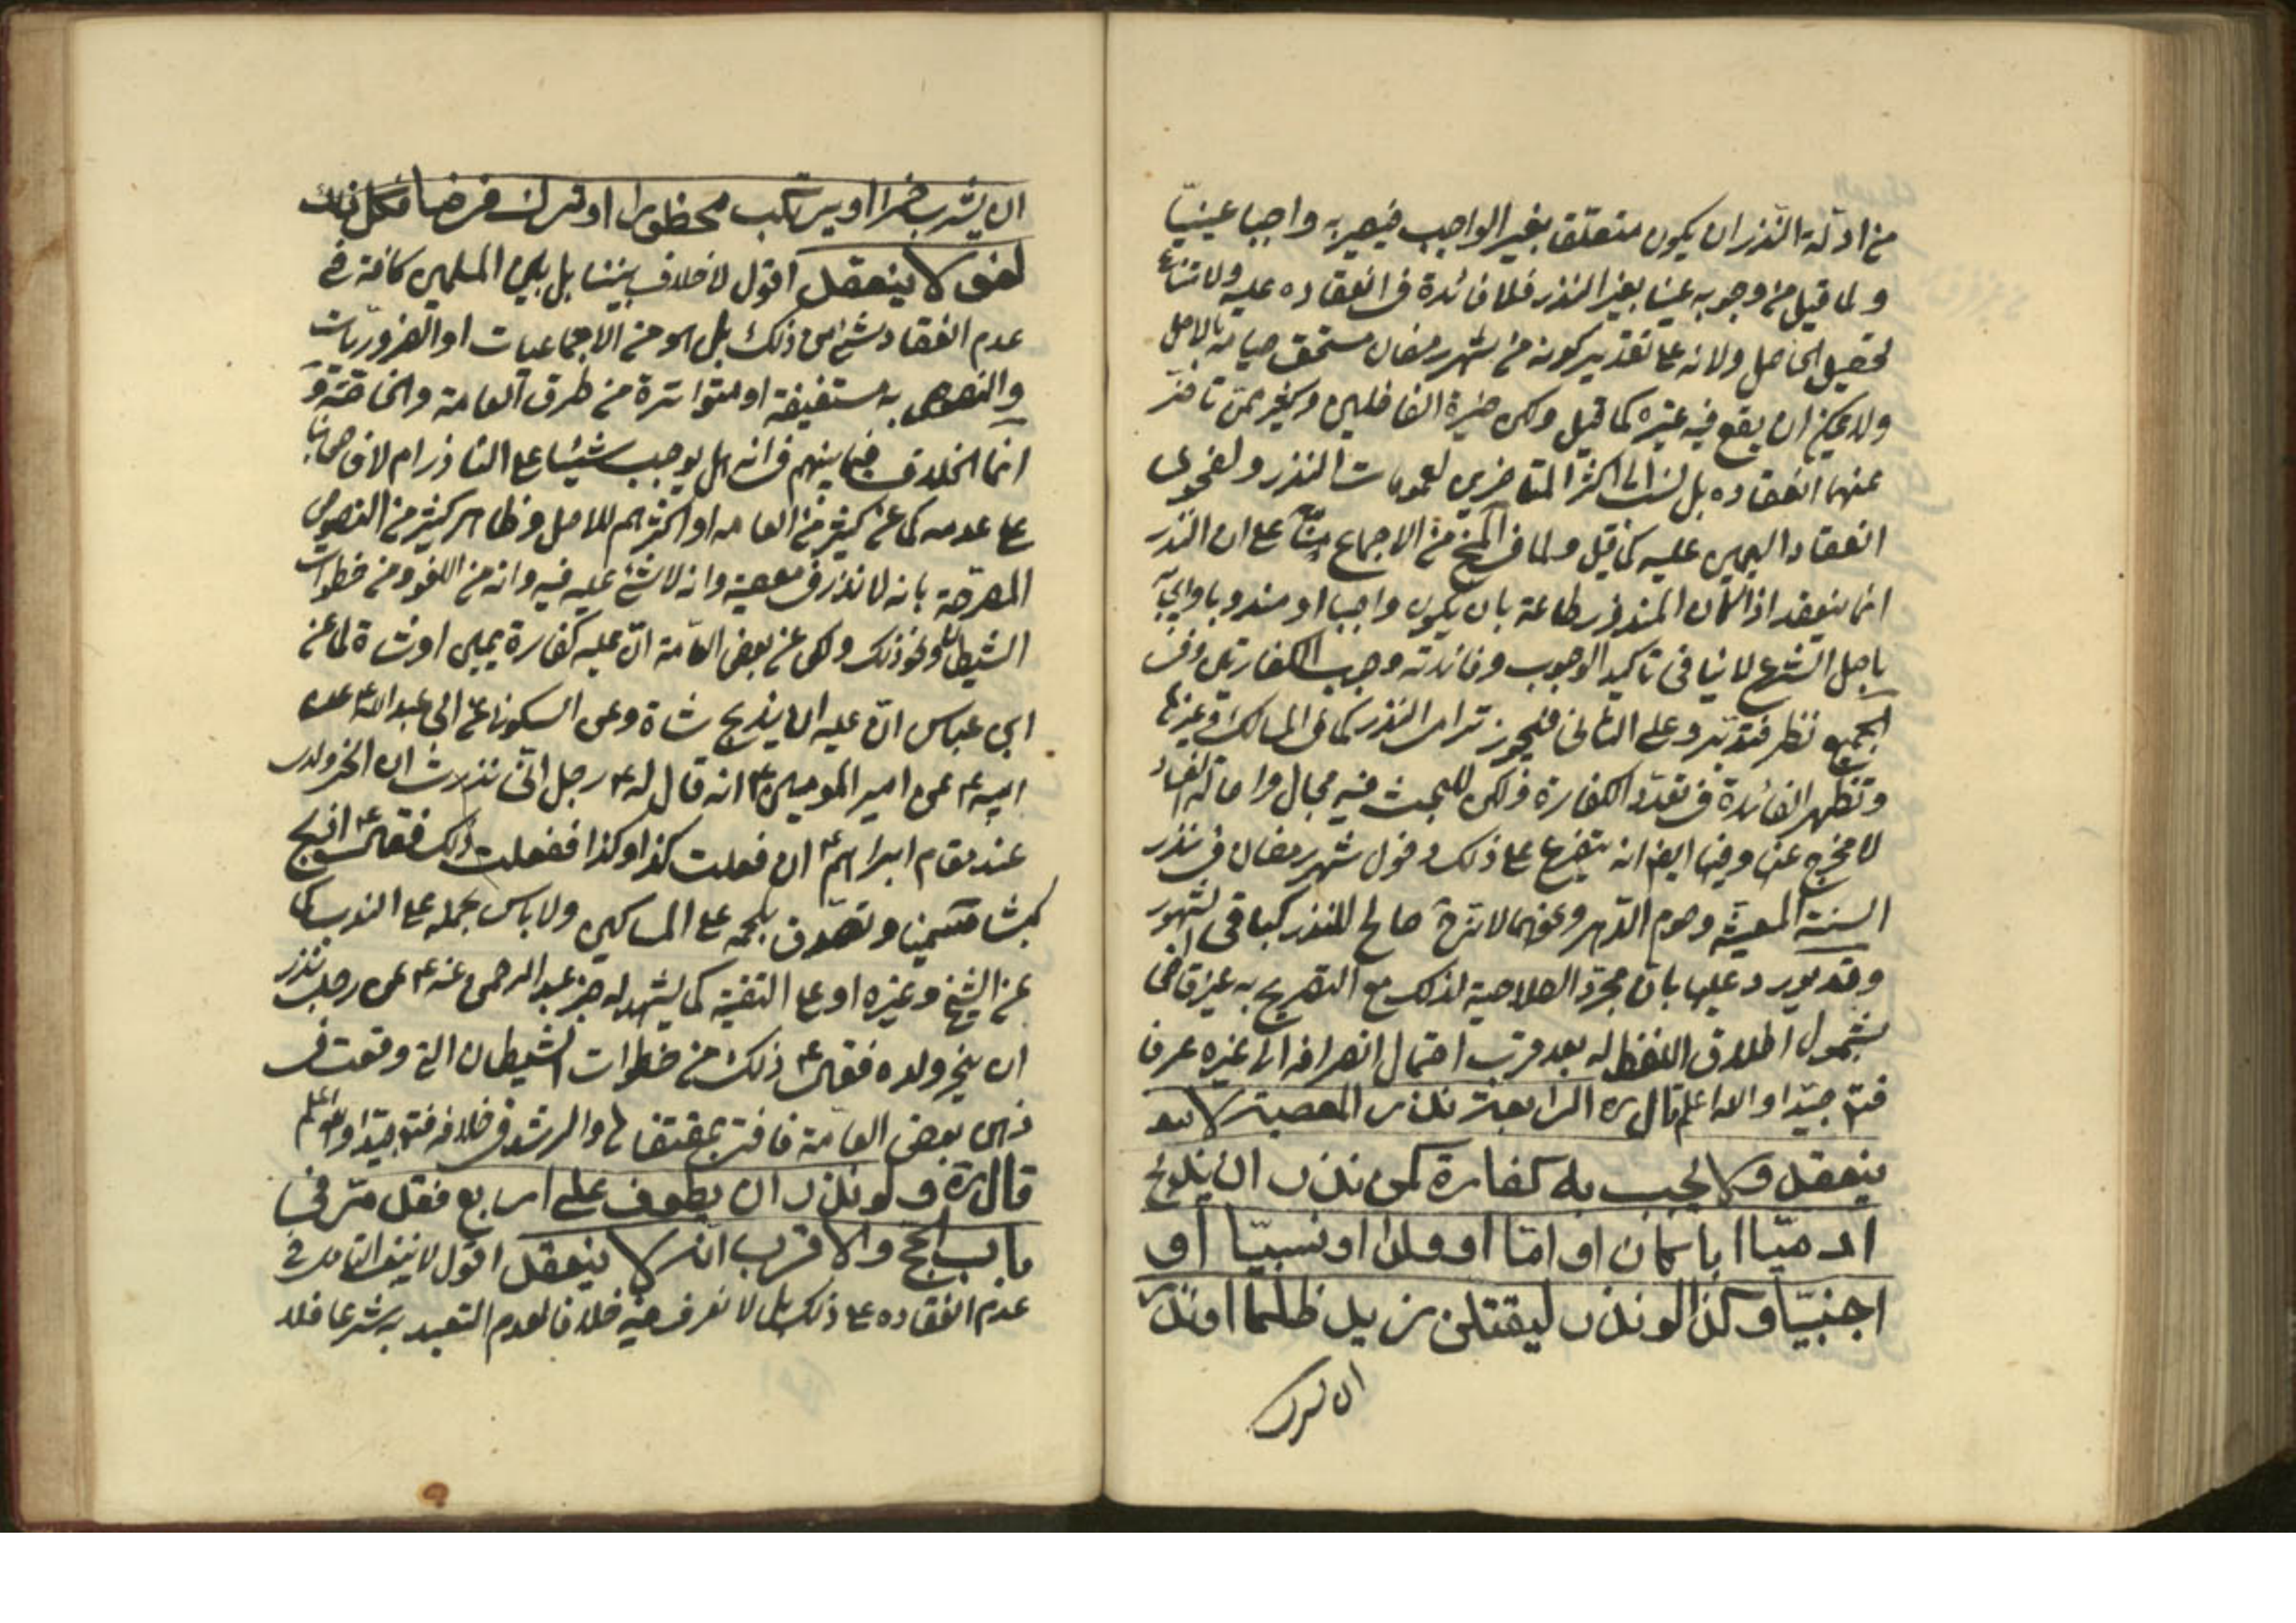 من ادلة النذر ان يكون متعلقا بغير الواجب فيصير به واجبا عينيّا
ولما قيل من وجوبه عينا بغير النذر فلا فائدة في انعقاده عليه ولامتناع
تحصيل الحاصل ولانه على تقدير كونه من شهر رمضان مستحق صيامه بالاصل
ولا يمكن ان يقع فيه غيره كما قيل ولكن خيرة الفاضلين وكثير ممن تاخر
عنهما انعقاده بل نسب الى اكثر المتاخرين لعمومات النذر ولفحوى
انعقاد اليمين عليه كما قيل ولما في من الاجماع منّا على ان النذر
انما ينعقد اذا كان المنذور طاعة بان يكون واجبا او مندوبا وايجابه
باصل الشرع لا ينافى تاكيد الوجوب وفائدته وجوب الكفارتين وفى
الجميع نظر فتدبر وعلى الثانى فيجوز ترامى النذر كما في المسالك وغيرها
وتظهر الفائدة في تعدّد الكفارة ولكن للبحث فيه مجال واصالة
لا مخرج عنها وفيها ايضا انه يتفرع على ذلك دخول شهر رمضان في نذر
السنة المعينة وصوم الدّهر ونحوهما لانّه ح صالح للنذر كباقى الشهور
وقد يورد عليها بان مجرّد الصلاحية لذلك مع التصريح به غير قاض
بشمول اطلاق اللفظ له بعد قرب احتمال انصرافه الى غيره عرفا
فتدبّر جيّدا والله اعلم قال ره الرابعة نذر المعصية لا
ينعقد ولا يجب به كفارة كمن نذر ان يذبح
ادميّا ابا كان او امّا او ولدا او نسيبّا او
اجنبيّا وكذا لو نذر ليقتلن زيد ظلما او نذر
ان يشرب خمرا او يرتكب محظورا او ترك فرضا فكل ذلك
لغو لا ينعقد اقول لا خلاف بيننا بل بين المسلمين كافة في
عدم انعقاد شئ من ذلك بل هو من الاجماعيات او الضروريّات
والنصوص به مستفيضة او متواترة من طرق العامة والخاصّة و
انما الخلاف فيما بينهم في انه هل يوجب شيئا على الناذر ام لا فاصحابنا
على عدمه كما عن كثير من العامه او اكثرهم للاصل وظاهر كثير من النصوص
المصرّحة بانه لا نذر في معصية وانه لا شئ عليه فيه وانه من اللغو ومن خطوات
الشيطان ونحو ذلك ولكن عن بعض العامّة انّ عليه كفارة يمين او شاة لما عن
ابن عباس انّ عليه ان يذبح شاة وعن السكونى عن ابى عبدالله ع عن
ابيه ع عن امير المومنين ع انه قال له ع رجل انّى نذرت ان انحر ولدى
عند مقام ابراهيم ع ان فعلت كذا وكذا ففعلت ذلك فقال ع اذبح
كبشا سمينا وتصدّق بلحمه على المساكين ولا باس بحمله على الندب كما
عن الشيخ وغيره او على التقية كما يشهد له خبر عبد الرحمن عنه ع عن رجل نذر
ان ينحر ولده فقال ع ذلك من خطوات الشيطان التى وقعت في
ذهن بعض العامّة فافتى بمقتضاها والرشد في خلافه فتدبر جيّدا والله اعلم
قال ره و لو نذر ان يطوف على اربع فقد مرّ في
باب الحج والاقرب انه لا ينعقد اقول لا ينبغى التامل في
عدم انعقاده على ذلك بل لا نعرف فيه خلافا لعدم التعبد به شرعا فلا